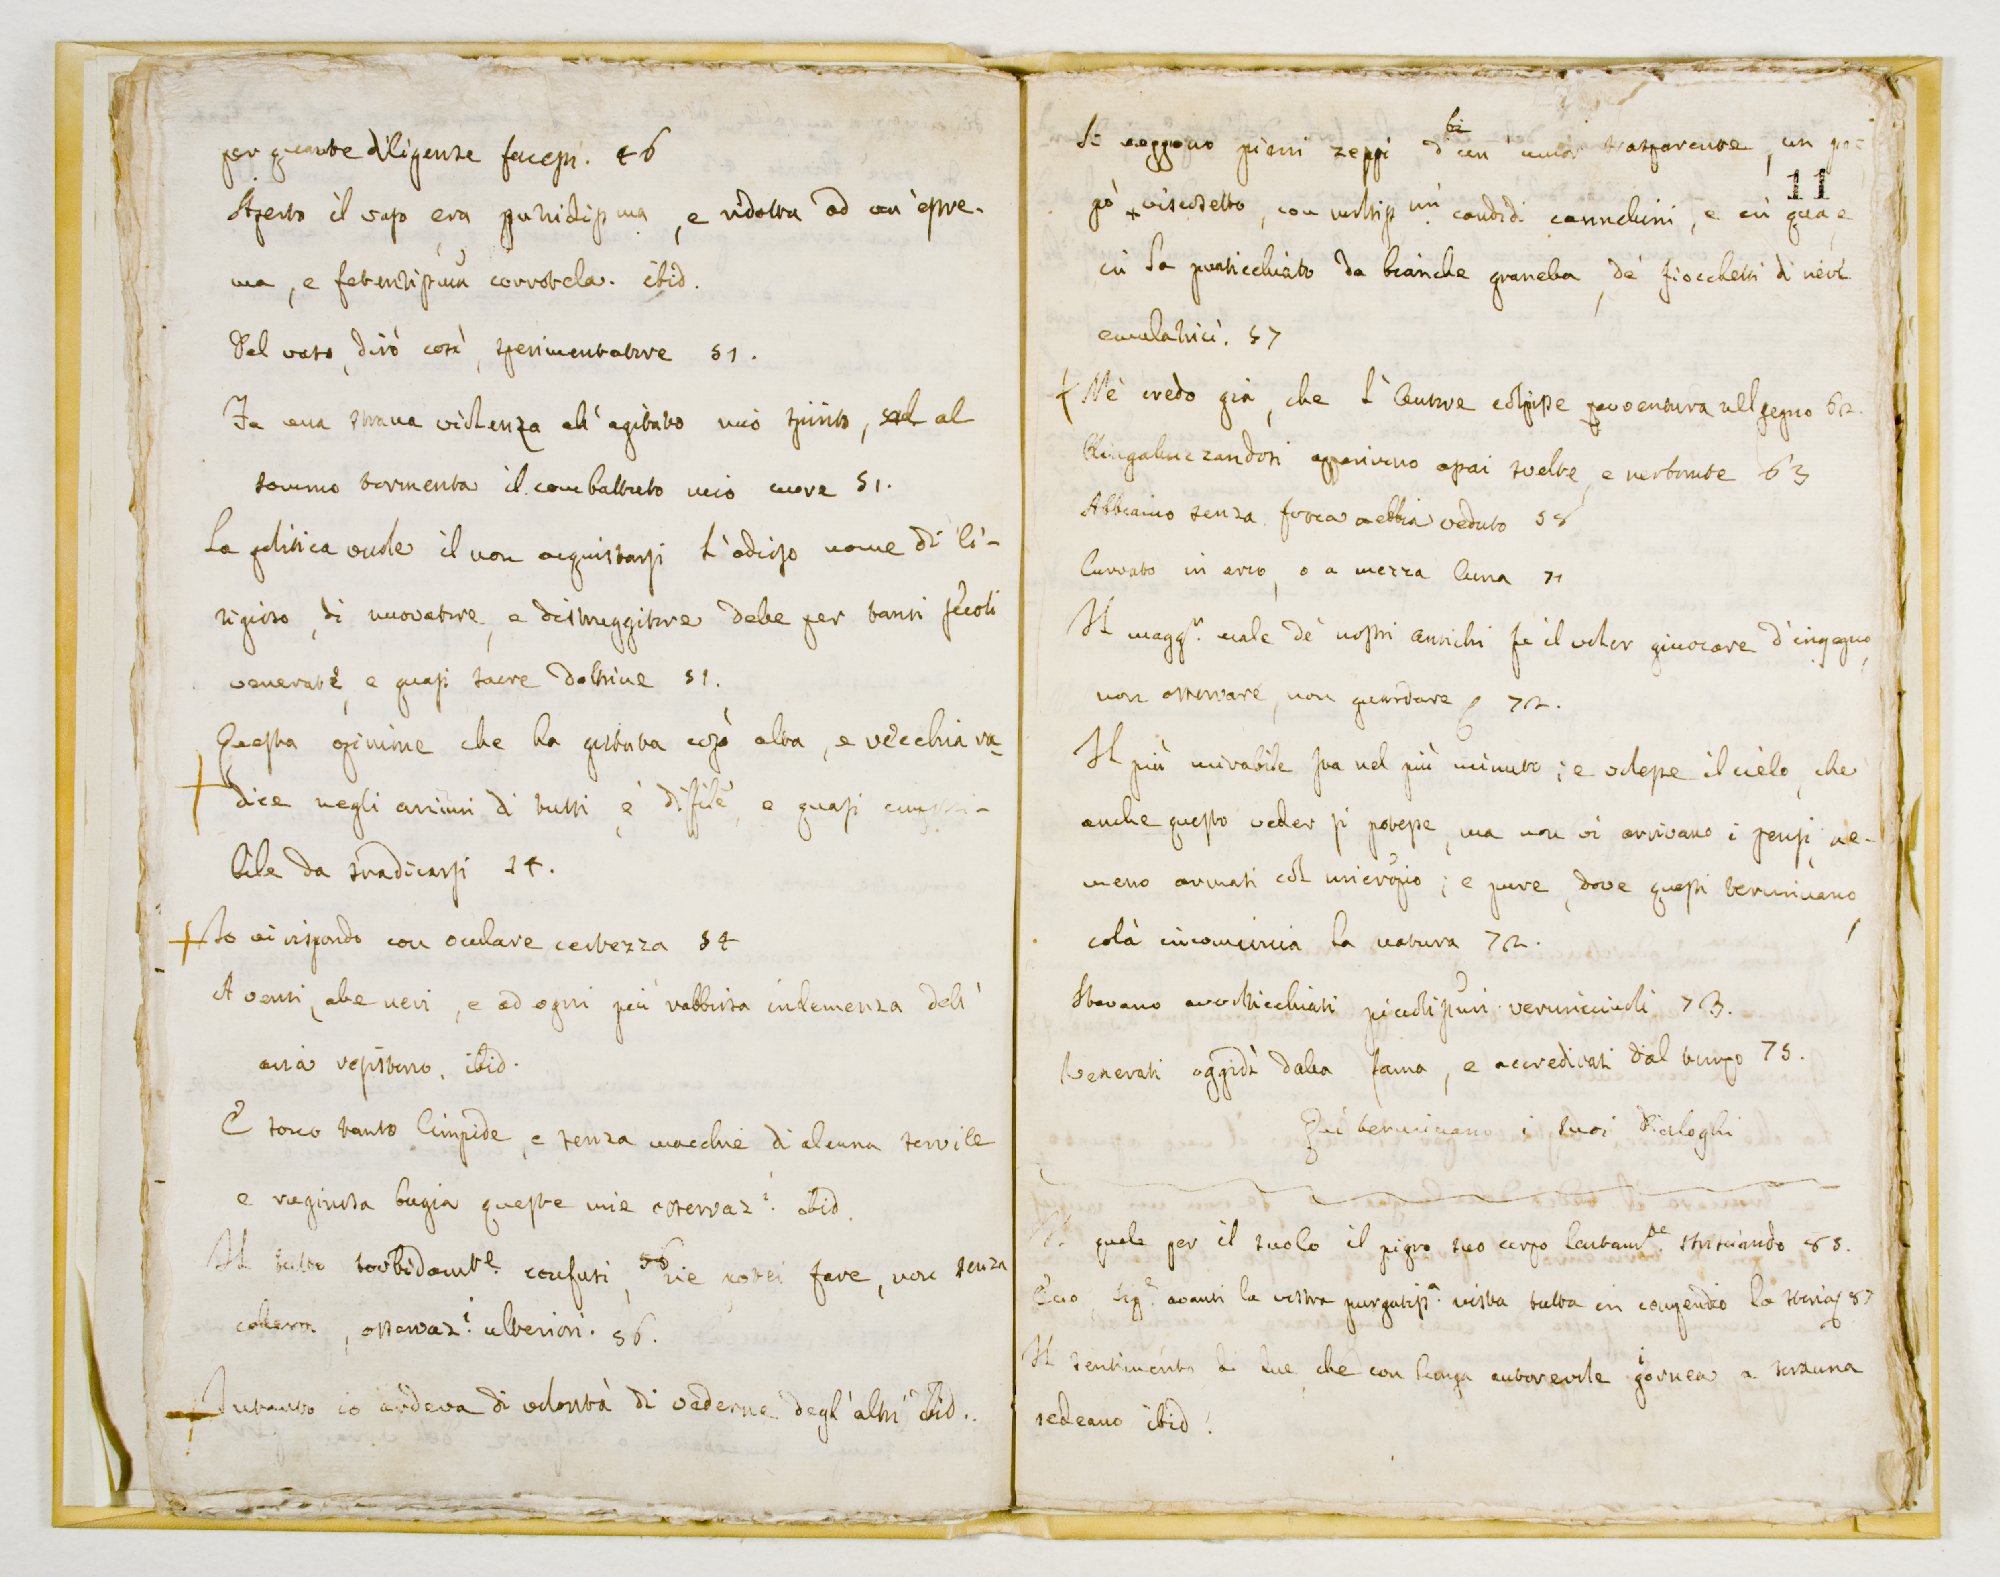 per quante diligenze facessi. 46
Aperto il vaso era putridissima, e ridotta ad un'estre-
ma, e fetentissima corrotela. ibid.
Del vero, dirò così, sperimentatore 51.
Fa una strana violenza all'agitato mio spirito, ed al
sommo tormenta il combattuto mio cuore 51.
La politica vuole il non acquistarsi l'odioso nome di li-
tigioso, di novatore, e distruggitore delle per tanti secoli
venerate, e quasi sacre dottrine 51.
Questa opinione che ha gettata così alta, e vecchia ra-
dice negli animi di tutti, è difficile, e quasi impossi-
bile da sradicarsi 24.
Io vi rispondo con oculare certezza 54
A venti, alle nevi, e ad ogni più rabbiosa inclemenza dell'
aria resistono. ibid.
E sono tanto limpide, e senza macchie di alcuna servile
e rugginosa bugia queste mie osservaz.i ibid.
Il tutto torbidam.te confusi, 56 nè potei fare, non senza
collera, osservaz.i ulteriori. 56.
Intanto io ardeva di volontà di vederne degl'altri ibid..
Si veggono pieni zeppi d'un umor trasparente, un po'
11
pò viscosetto, con moltiss.mi candidi cannellini, e in qua, e
in là punticchiato da bianche granella, de' fiocchetti di neve
emulatrici. 57
Nè credo già, che l'Autore colpisse peravventura nel segno 62.
Ringalluzzandosi apparivano assai svelte, e nerborute 63
Abbiamo senza forza nebbia veduto 58
Curvato in arco, o a mezza luna 71
Il magg.r male de' nostri antichi fu il voler giuocare d'ingegno,
non osservare, non guardare 72.
Il più mirabile sta nel più minuto; e volesse il cielo, che
anche questo veder si potesse, ma non vi arrivano i sensi, ne-
meno armati col microscopio; e pure, dove questi terminano,
colà incomincia la natura 72.
Stavano avvolticchiati piccolissimi vermicciuoli 73.
Venerati oggidì dalla fama, e accreditati dal tempo 75.
Qui terminano i suoi Dialoghi
Il quale per il suolo il pigro suo corpo lentam.te strisciando 83.
Ecco, Sig.e avanti la vostra purgatiss.a vista tutta in compendio la storia 87
Il sentimento di due, che con lunga autorevole giornea a scranna
sedeano ibid.